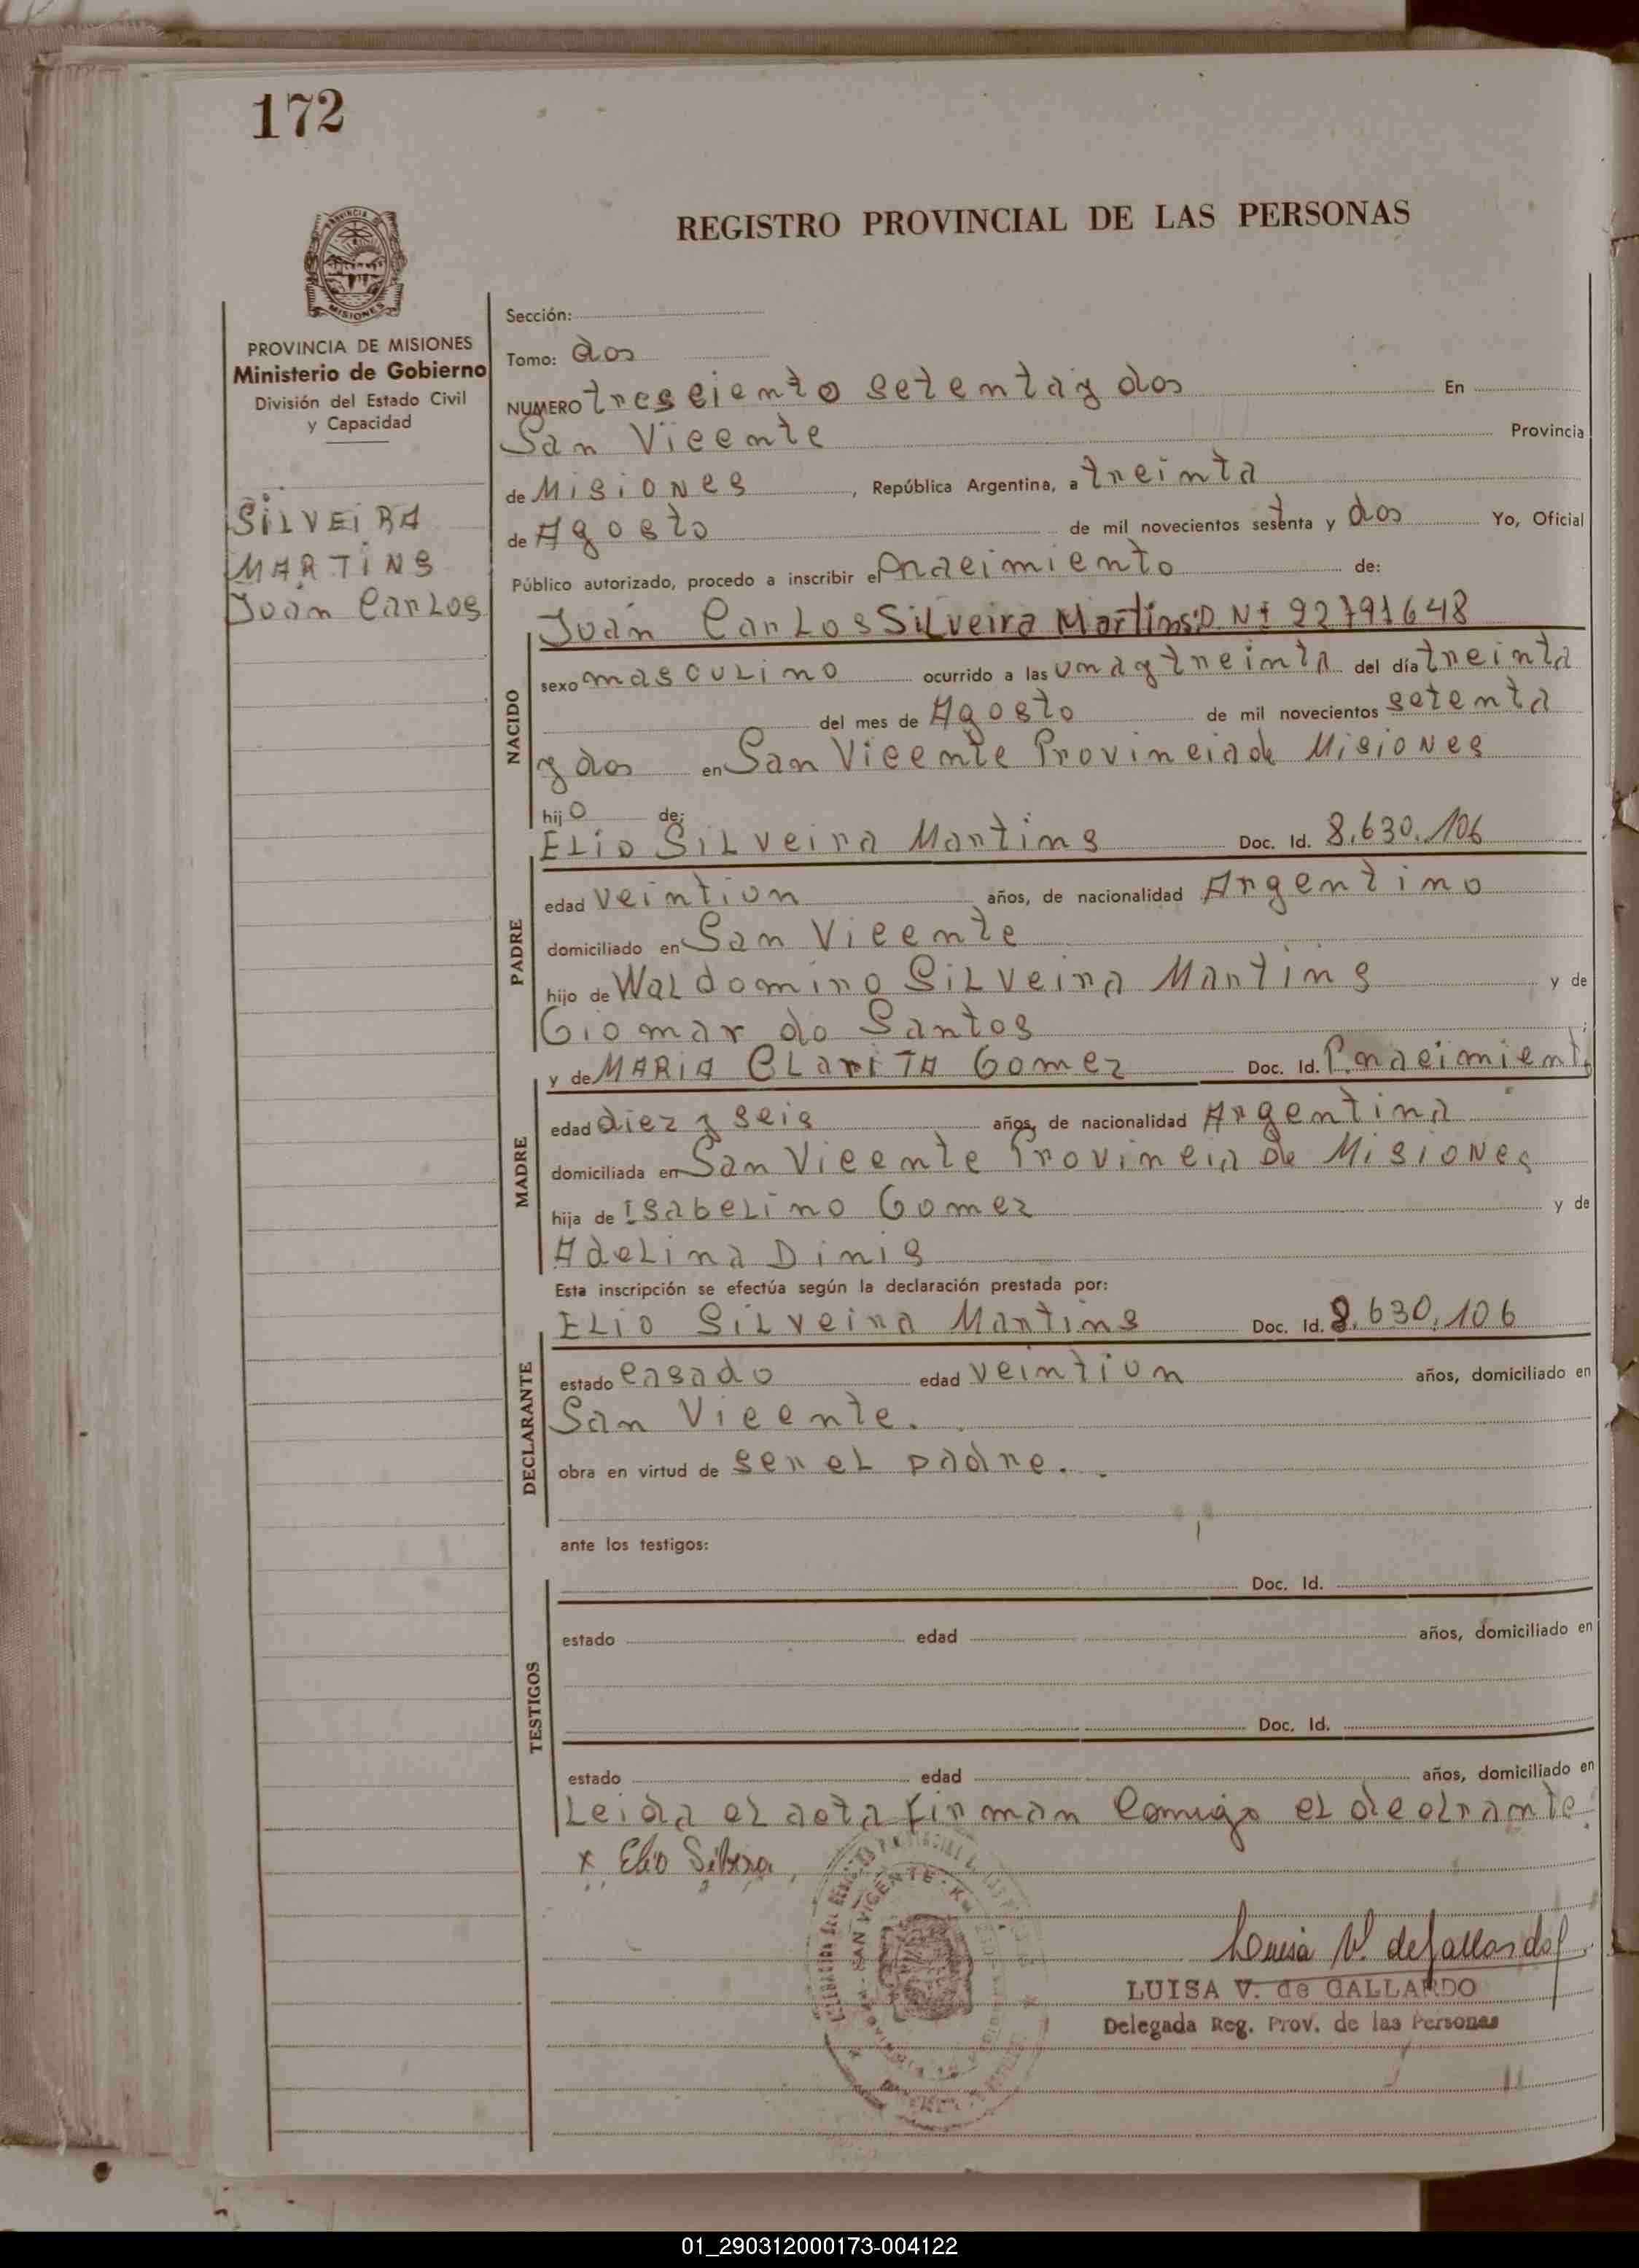 172
REGISTRO PROVINCIAL DE LAS PERSONAS
PROVINCIA DE MISIONES
Ministerio de Gobierno
División del Estado Civil
y Capacidad
SILVEIRA
MARTINS
Juan Carlos
Sección:
Tomo: dos
NUMERO tresciento setenta y dos En
San Vicente Provincia
de Misiones, República Argentina, a treinta
de Agosto de mil novecientos setenta y dos Yo, Oficial
Público autorizado, procedo a inscribir el nacimiento de:
Juan Carlos Silveira Martins: D NI
NACIDO
sexo masculino ocurrido a las una y treinta del día treinta
del mes de Agosto de mil novecientos setenta
y dos en San Vicente Provincia de Misiones
hijo de:
Elio Silveira Martins Doc. Id. 8.630.106
PADRE
edad veintiun años, de nacionalidad Argentino
domiciliado en San Vicente
hijo de Waldomiro Silveira Martins y de
Giomar do Santos
y de MARIA Clarita Gomez Doc. Id. P. nacimiento
MADRE
edad diez y seis años, de nacionalidad Argentina
domiciliada en San Vicente Provincia de Misiones
hija de Isabelino Gomez y de
Adelina Dinis
Esta inscripción se efectúa según la declaración prestada por:
Elio Silveira Martins Doc. Id. 8.630.106
DECLARANTE
estado casado edad veintiun años, domiciliado en
San Vicente.
obra en virtud de ser el padre.
ante los testigos:
TESTIGOS
Doc. Id.
estado edad años, domiciliado en
Doc. Id.
estado edad años, domiciliado en
Leida el acta firman comigo el declrante
x Elio Silvera
SAN VICENTE
Luisa V. de Gallardo
LUISA V. de GALLARDO
Delegada Reg. Prov. de las Personas
01_290312000173-004122